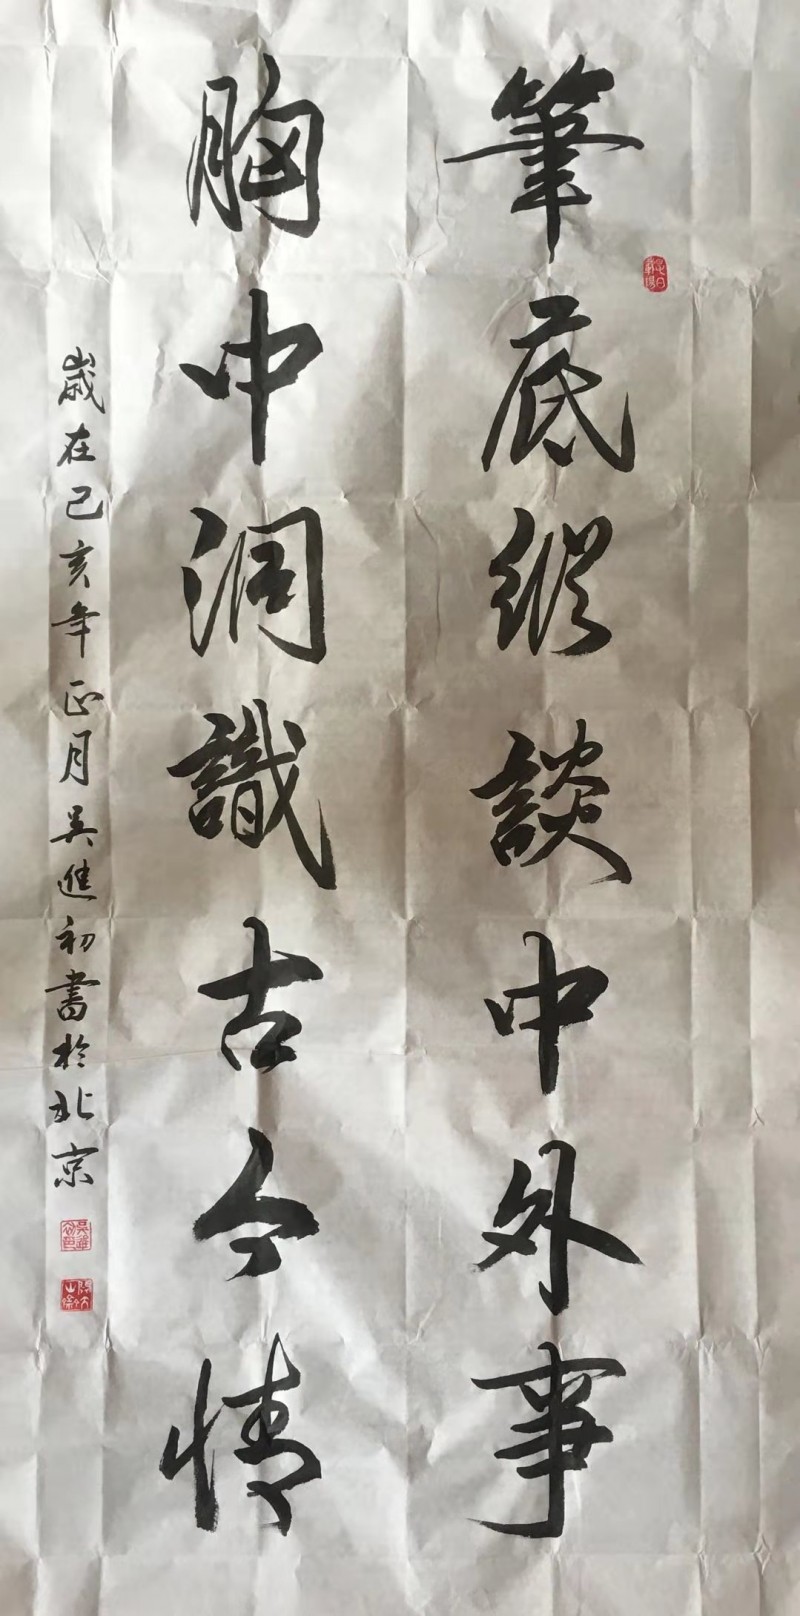 筆底縱談中外事
胸中洞識古今情
歲在己亥年正月吳進初書於北京